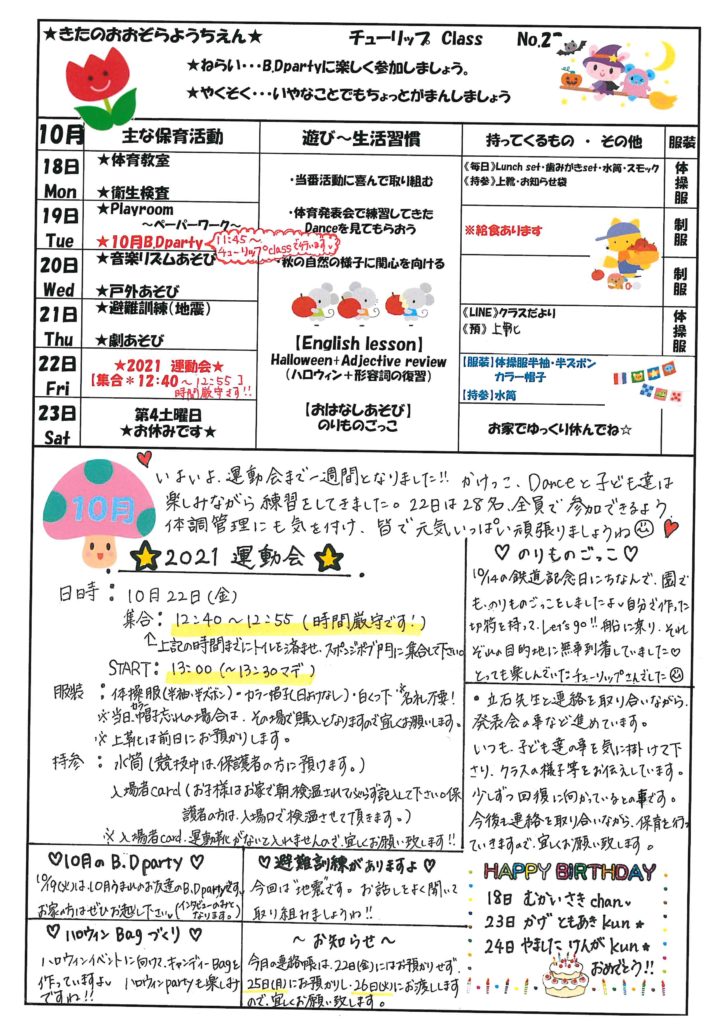 ★きたのおおぞらようちえん★ チューリップ Class No.2
★ねらい・・・B,Dpartyに楽しく参加しましょう。
★やくそく・・・いやなことでもちょっとがまんしましょう
10月 主な保育活動 遊び～生活習慣 持ってくるもの ・ その他 服装
18日 Mon
★体育教室
★衛生検査
・当番活動に喜んで取り組む
《毎日》Lunch set・歯みがきset・水筒・スモック
《持参》上靴・お知らせ袋
体操服
19日 Tue
★Playroom
～ペーパーワーク～
★10月B,Dparty
11:45～
チューリップclassで行います♡
・体育発表会で練習してきた
Danceを見てもらおう
※給食あります
制服
20日 Wed
★音楽リズムあそび
★戸外あそび
・秋の自然の様子に関心を向ける
制服
21日 Thu
★避難訓練(地震)
★劇あそび
【English lesson】
Halloween+Adjective review
(ハロウィン+形容詞の復習)
《LINE》クラスだより
《預》上靴
体操服
22日 Fri
★2021 運動会★
【集合＊12:40～12:55】
時間厳守です!!
【服装】体操服半袖・半ズボン
カラー帽子
【持参】水筒
23日 Sat
第4土曜日
★お休みです★
【おはなしあそび】
のりものごっこ
お家でゆっくり休んでね☆
10月
いよいよ、運動会まで一週間となりました!! かけっこ、Danceと子ども達は
楽しみながら練習をしてきました。22日は28名、全員で参加できるよう、
体調管理にも気を付け、皆で元気いっぱい頑張りましょうね
★2021 運動会★
日時：10月22日(金)
集合：12:40～12:55 (時間厳守です!)
↑上記の時間までにトイレを済ませ、スポンジボブ門に集合して下さい
START：13:00 (～13:30マデ)
服装：体操服(半袖・半ズボン)・カラー帽子(日よけなし)・白くつ下 ※名札不要!
※当日、カラー帽子忘れの場合は、その場で購入となりますので宜しくお願いします。
※上靴は前日にお預かりします。
持参：水筒(競技中は、保護者の方に預けます。)
入場者card (お子様はお家で朝、検温されてから必ず記入して下さい。保
護者の方は、入場口で検温させて頂きます。)
※入場者card、運動靴がないと入れませんので、宜しくお願い致します!!
♡のりものごっこ♡
10/14の鉄道記念日にちなんで、園で
も、のりものごっこをしましたよ♡自分で作った
切符を持って、Let's go!! 船に乗り、それ
ぞれの目的地に無事到着していました♡
とっても楽しんでいたチューリップさんでした
・立石先生と連絡を取り合いながら、
発表会の事など進めています。
いつも、子ども達の事を気に掛けて下
さり、クラスの様子等をお伝えしています。
少しずつ回復に向かっているとの事です。
今後も連絡を取り合いながら、保育を行っ
ていきますので、宜しくお願い致します。
♡10月のB.Dparty♡
10/19(火)は、10月うまれのお友達のB.Dpartyです。
お家の方はぜひお越し下さい♡(インタビューのみと
なります。)
♡避難訓練がありますよ♡
今回は"地震"です。お話しをよく聞いて
取り組みましょうね!!
♡ハロウィンBagづくり♡
ハロウィンイベントに向けて、キャンディーBagを
作っていますよ♡ ハロウィンpartyも楽しみ
ですね!!
～お知らせ～
今月の連絡帳は、22日(金)にはお預かりせず、
25日(月)にお預かりし、26日(火)にお渡しします
ので、宜しくお願い致します。
HAPPY BiRTHDAY
18日 むかい さき chan♡
23日 かげ ともあき kun★
24日 やました けんが kun★
おめでとう!!